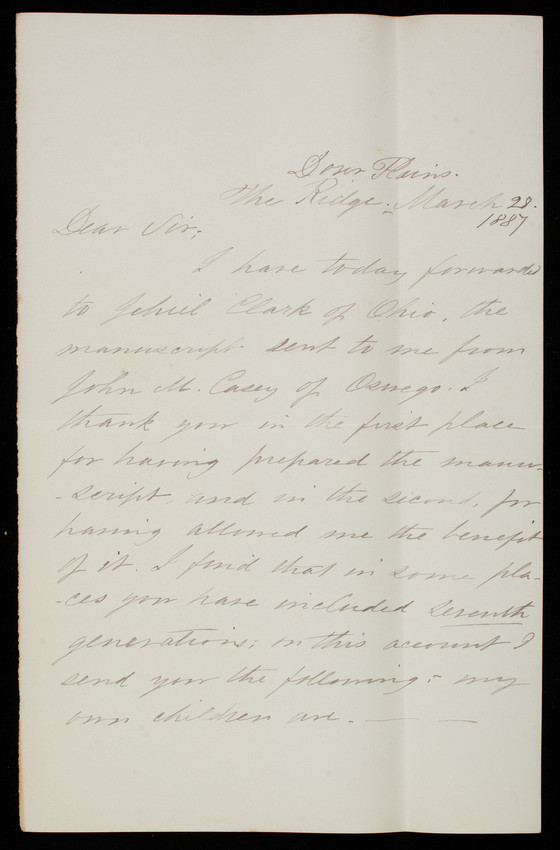 Dover Plains.
The Ridge. March 28.
1887
Dear Sir;
I have today forwarded
to Jehiel Clark of Ohio, the
manuscript sent to me from
John M. Casey of Oswego. I
thank you in the first place
for having prepared the manu-
-script, and in the second, for
having allowed me the benefit
of it. I find that in some pla-
-ces you have included seventh
generations; on this account I
send you the following:- my
own children are. — —